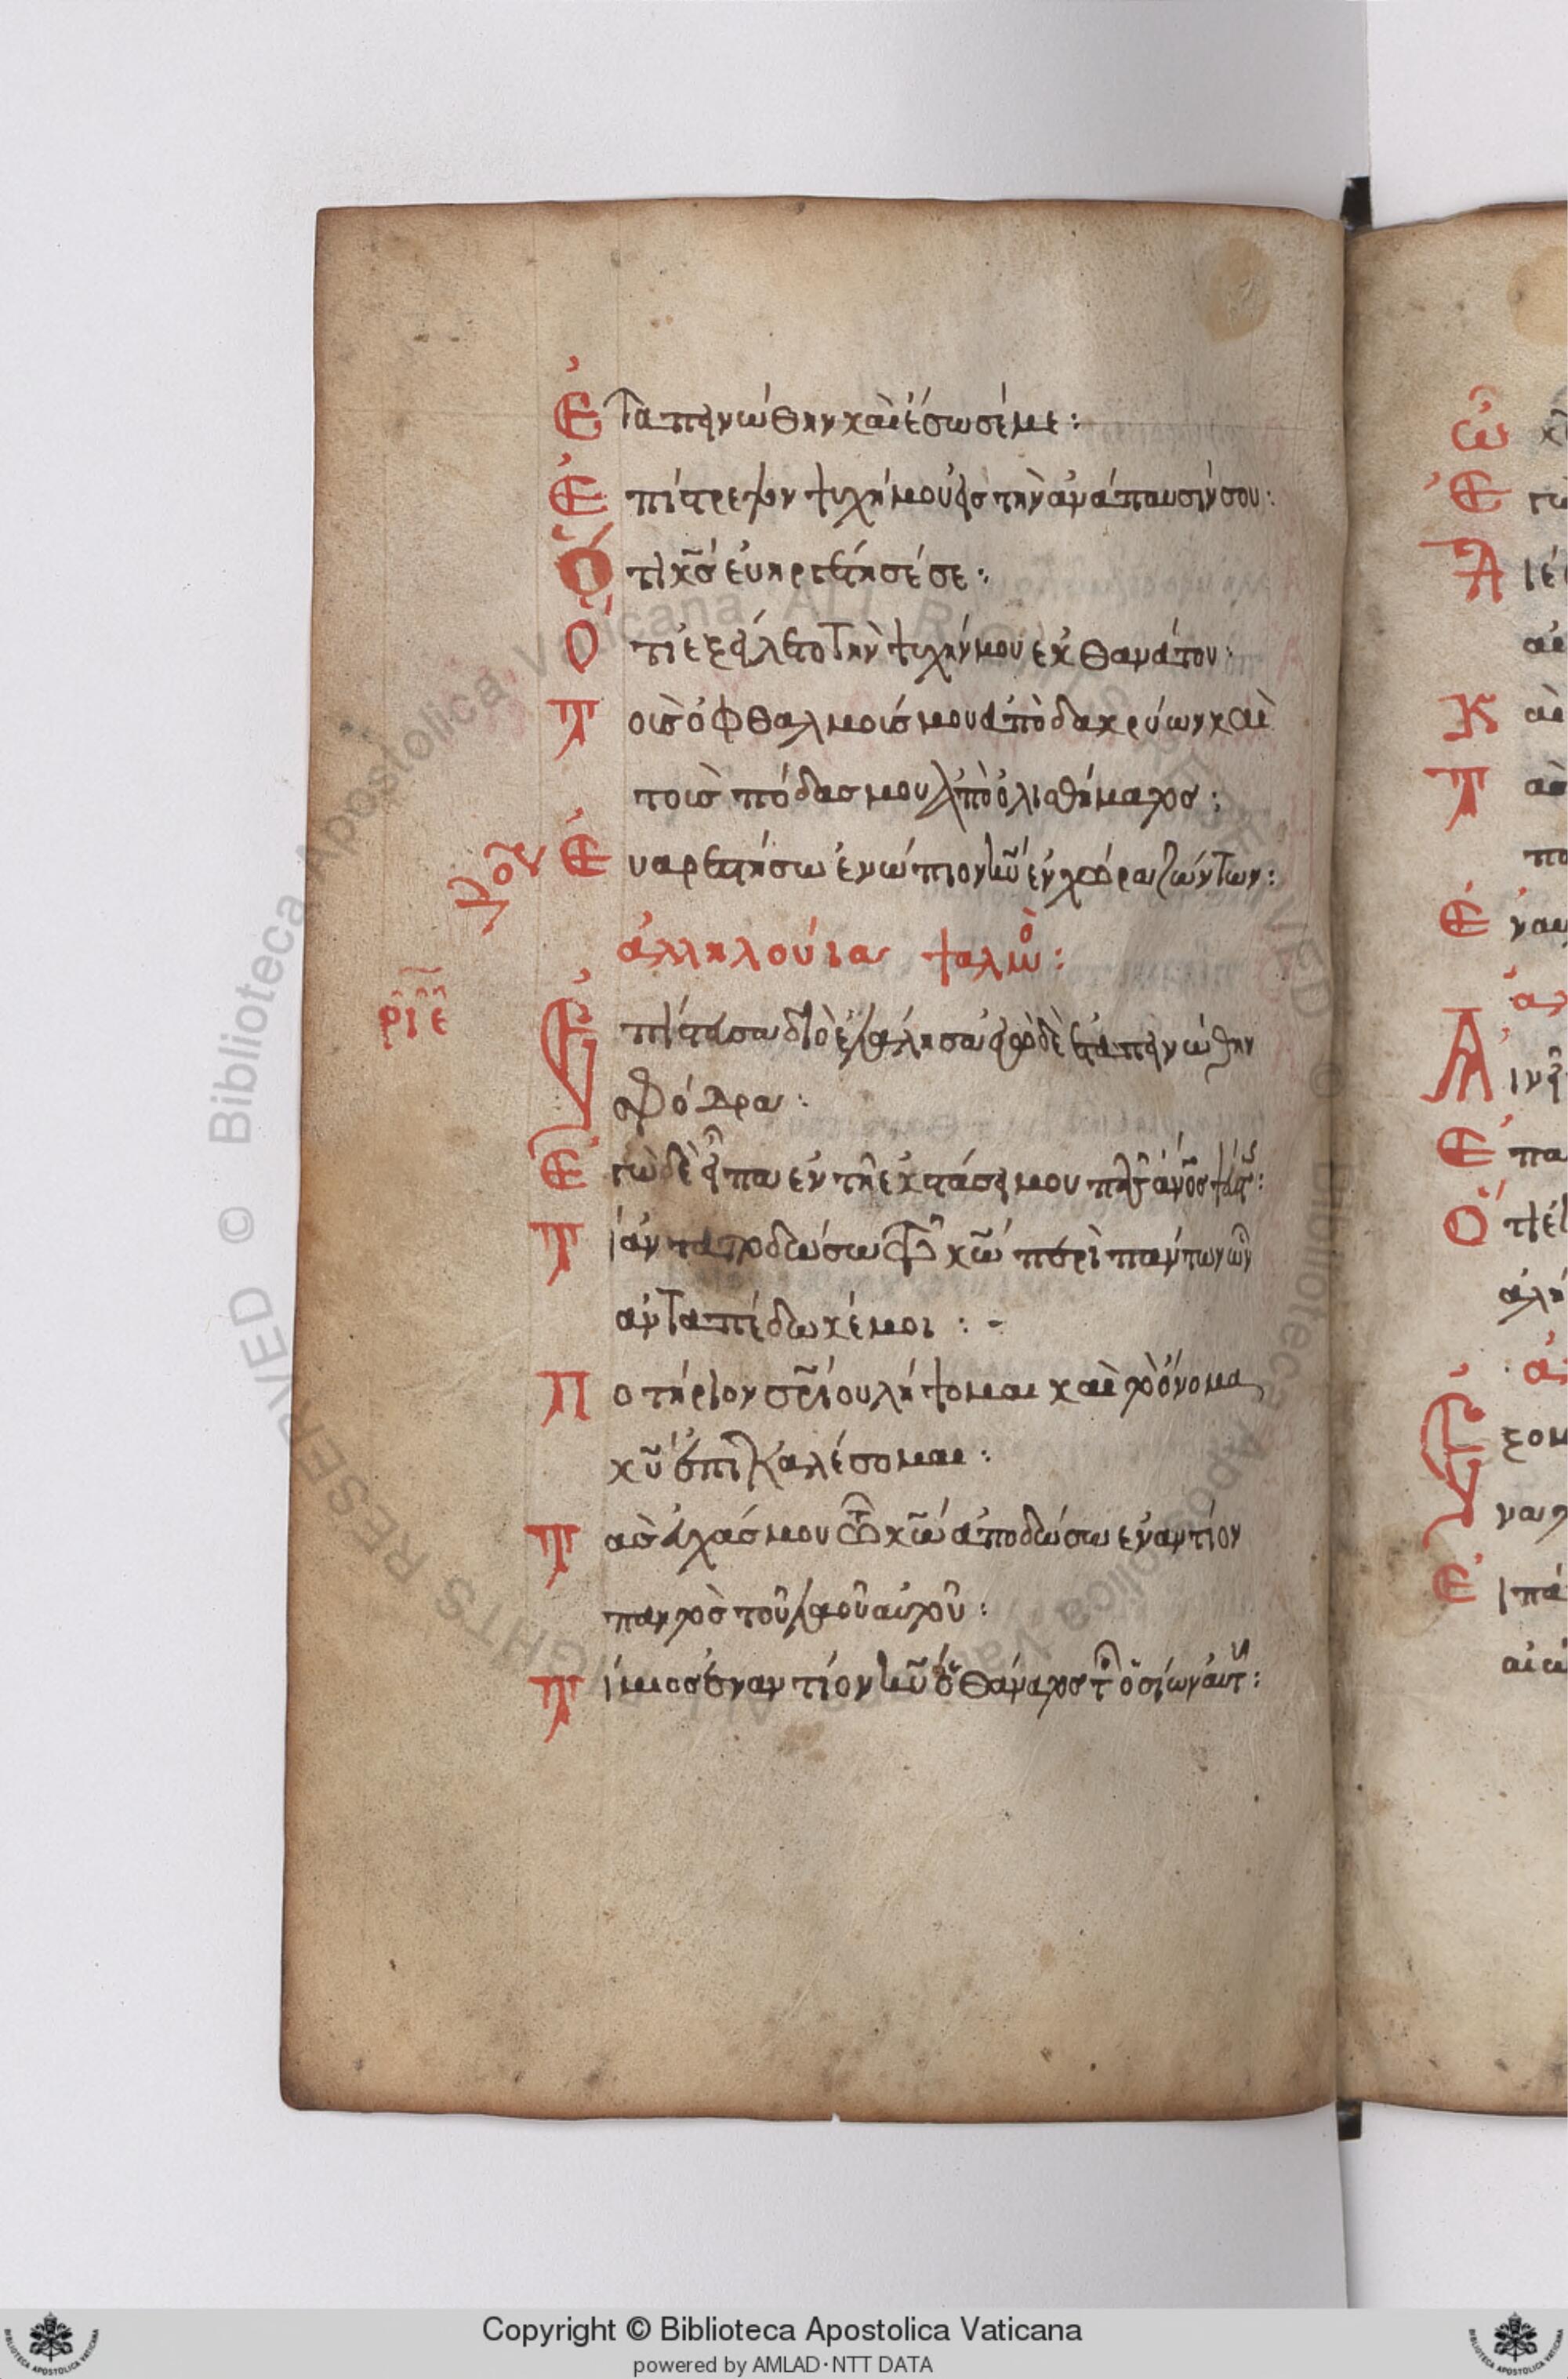 Ἐταπεινώθην καὶ ἔσωσέ με:
Ἐπίστρεψον ψυχή μου εἰς τὴν ἀνάπαυσίν σου:
Ὅτι κ̅ς̅ εὐηργέτησέ σε:
Ὅτι ἐξείλετο τὴν ψυχήν μου ἐκ θανάτου:
Τοὺς ὀφθαλμούς μου ἀπὸ δακρύων καὶ
τοὺς πόδας μου ἀπὸ ὀλισθήματος:
Εὐαρεστήσω ἐνώπιον κ̅υ̅ ἐν χώρα ζώντων:
ἀλληλούϊα
ρ̅ι̅ε̅
Ἐπίστευσα διὸ ἐλάλησα ἐγὼ δὲ ἐταπεινώθην
σφόδρα:
Ἐγὼ δὲ εἶπα ἐν τῇ ἐκστάσει μου πᾶς ἄν̅ο̅ς ψεύστης:
Τί ἀνταποδώσω τῷ κ̅ω̅ περὶ πάντων ὧν
ἀνταπέδωκέ μοι:-
Ποτήριον σ̅ρ̅ίου λήψομαι καὶ τὸ ὄνομα
κ̅υ̅ ἐπικαλέσομαι:
Τὰς εὐχάς μου τῷ κ̅ω̅ ἀποδώσω ἐναντίον
παντὸς τοῦ λαοῦ αὐτοῦ:
Τίμιος ἐναντίον κ̅υ̅ ὁ θάνατος τῶν ὁσίων αὐτοῦ:
Copyright © Biblioteca Apostolica Vaticana
powered by AMLAD·NTT DATA